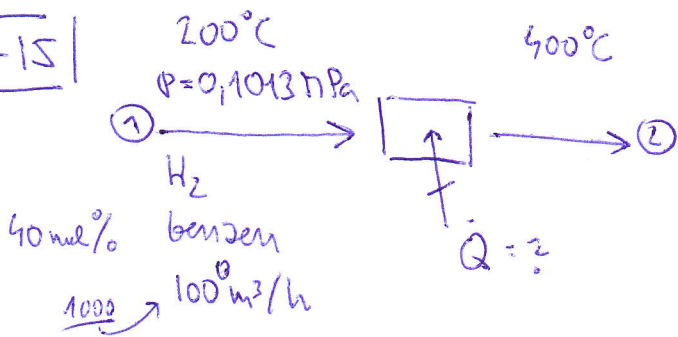 -15
200°C
400°C
P=0,1013 MPa
1
2
H2
40 mol% benzen
Q̇ = ?
1000 m³/h
1000